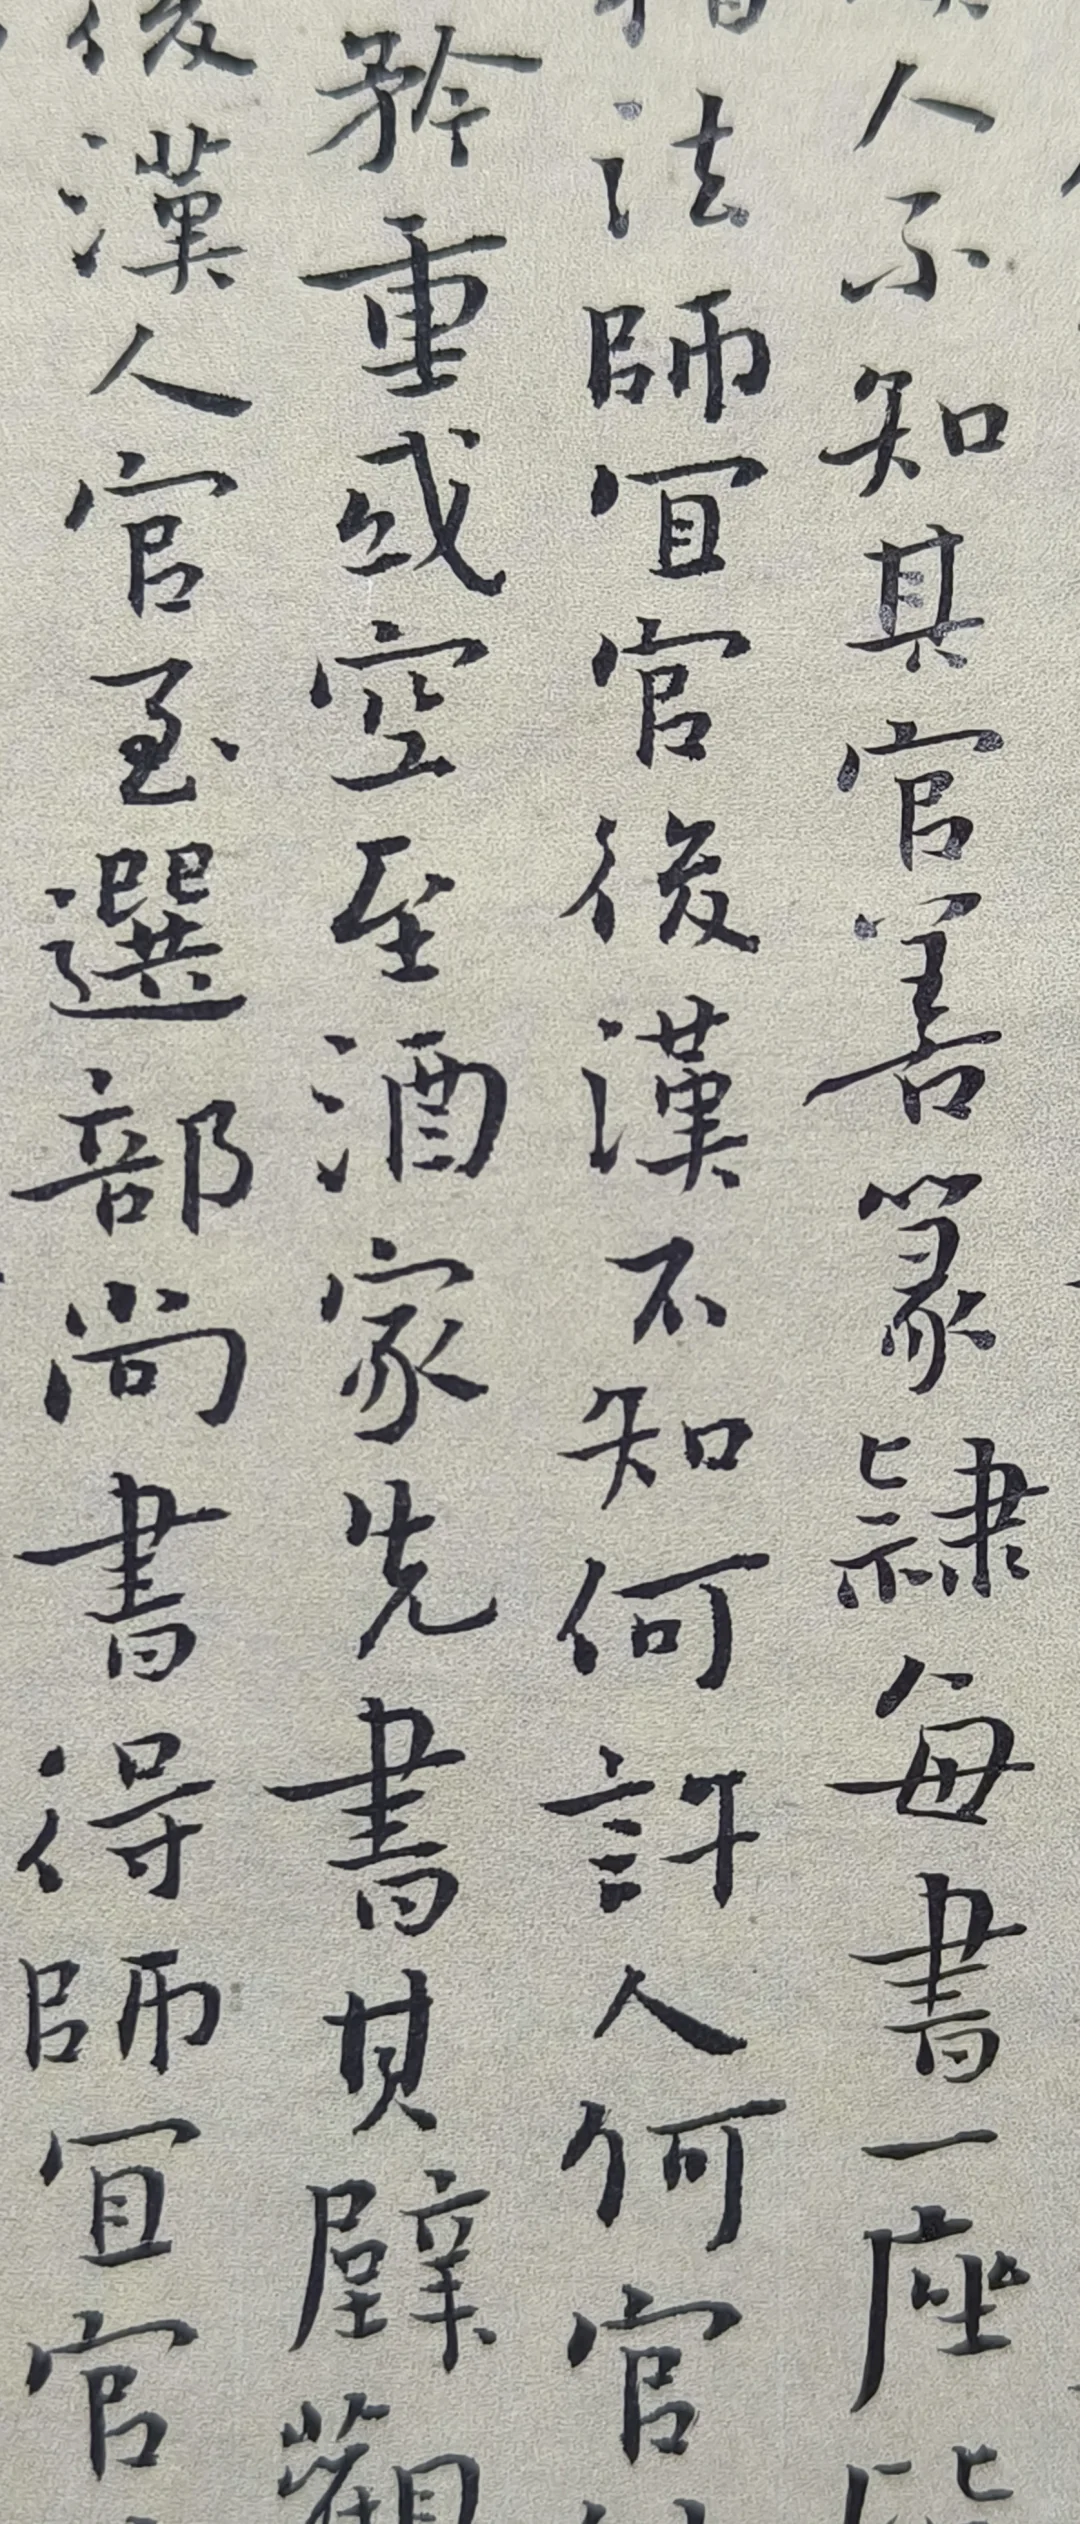 人不知其官善篆隸每書一座皆
法師冝官後漢不知何許人何官
矜重或空至酒家先書其壁觀
後漢人官至選部尚書得師冝官